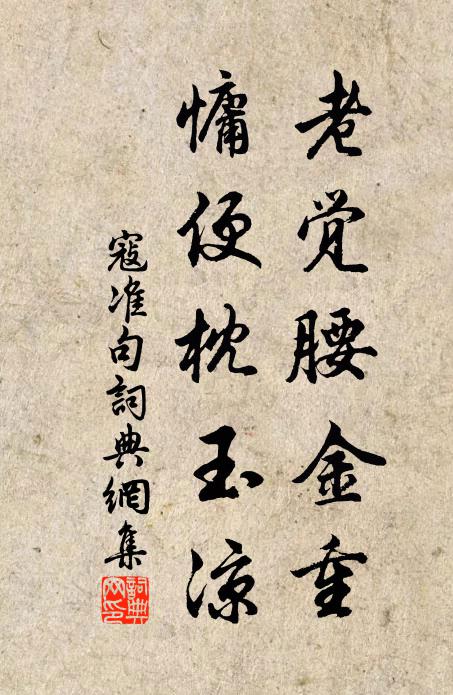 老觉腰金重
慵便枕玉凉
寇准句詞典網集
詞典網印